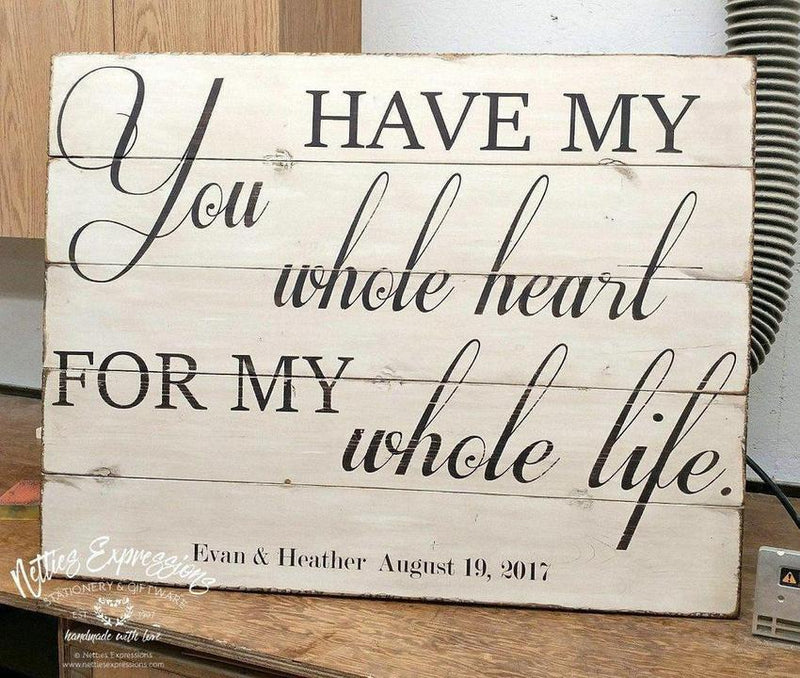 You HAVE MY
whole heart
FOR MY
whole life.
Evan & Heather August 19, 2017
Netties Expressions
STATIONERY & GIFTWARE
EST. 1997
handmade with love
© Netties Expressions
www.nettiesexpressions.com